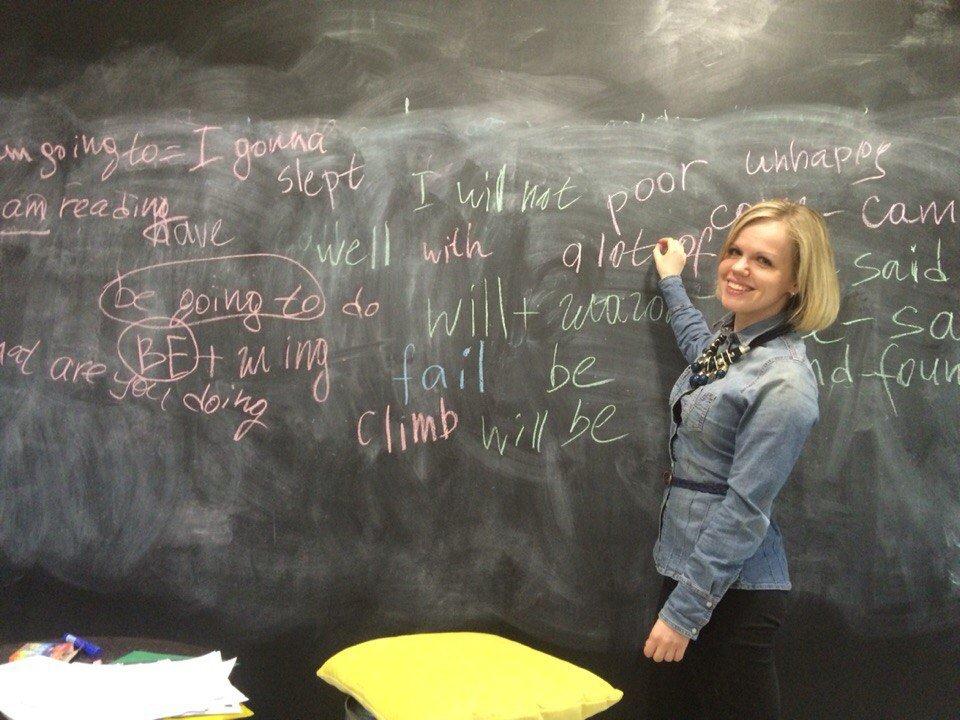 m going to = I gonna
slept
I will not poor unhappy
am reading
have
well with a lot of
- cam
said
be going to do
will + глаго
- sa
BE + гл ing
at are you doing
fail be
nd - foun
Climb will be